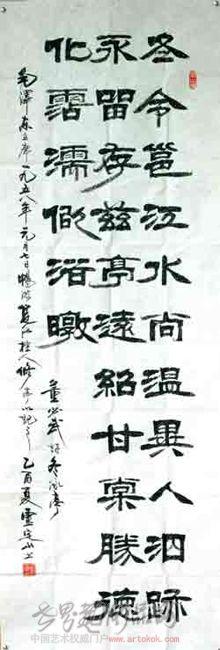 冬令邕江水尚温異人泅跡
永留存兹亭遠紹甘棠勝德
化霑濡似浴暾
董必武詩冬泳亭
毛澤東主席一九五八年元月七日暢游邕江 人修亭以記之 乙酉夏
中国艺术权威门户 www.artokok.com